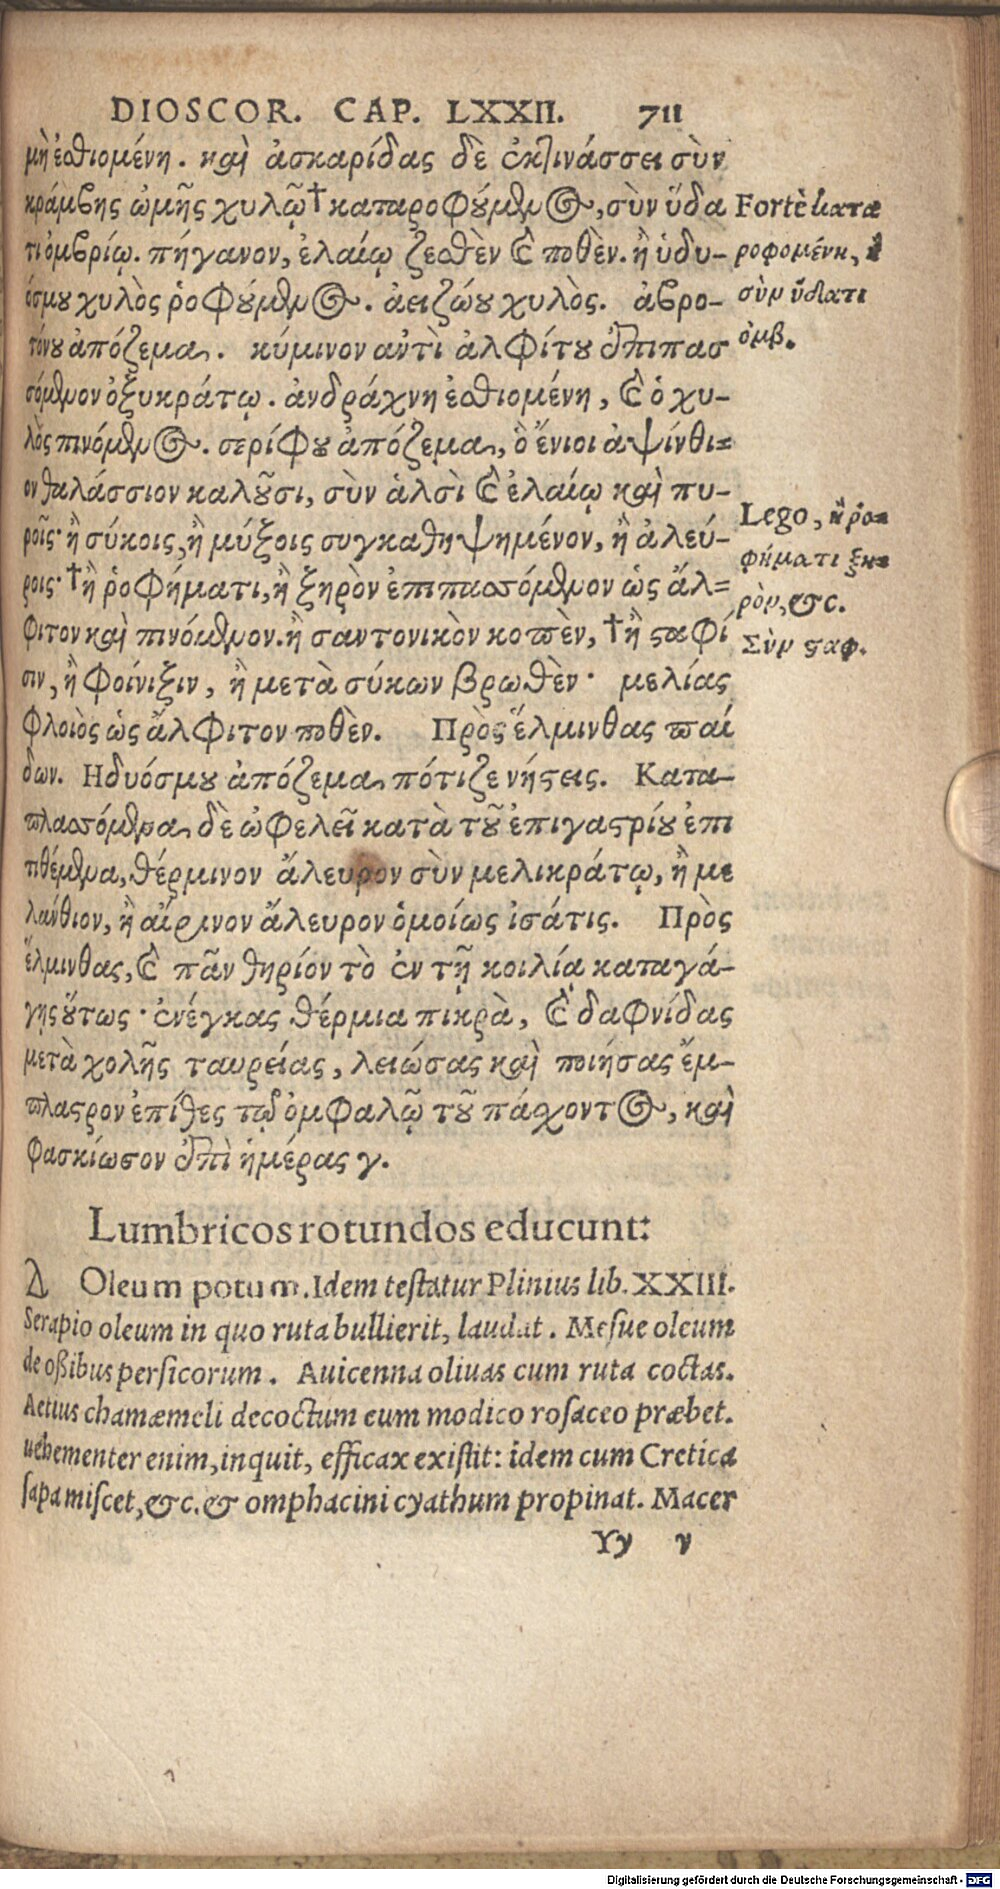 DIOSCOR. CAP. LXXII. 711
μὴ ἐσθιομένη. καὶ ἀσκαρίδας δὲ ἐκτινάσσει σὺν
κράμβης ὠμῆς χυλῷ † καταροφούμενος, σὺν ὕδα
τι ὀμβρίῳ. πήγανον, ἐλαίῳ ζεσθὲν καὶ ποθὲν. ἢ ἡδυ-
όσμου χυλὸς ῥοφούμενος. ἀειζώου χυλὸς. ἀβρο-
τόνου ἀπόζεμα. κύμινον ἀντὶ ἀλφίτου ἐπιπασ
σόμενον ὀξυκράτῳ. ἀνδράχνη ἐσθιομένη, καὶ ὁ χυ-
λὸς πινόμενος. σερίφου ἀπόζεμα, ὃ ἔνιοι ἀψίνθι-
ον θαλάσσιον καλοῦσι, σὺν ἁλσὶ καὶ ἐλαίῳ καὶ πυ-
ροῖς· ἢ σύκοις, ἢ μύξοις συγκαθηψημένον, ἢ ἀλεύ-
ροις· † ἢ ῥοφήματι, ἢ ξηρὸν ἐπιπασσόμενον ὡς ἄλ-
φιτον καὶ πινόμενον. ἢ σαντονικὸν κοπὲν, † ἢ σταφί
σιν, ἢ φοίνιξιν, ἢ μετὰ σύκων βρωθὲν· μελίας
φλοιὸς ὡς ἄλφιτον ποθὲν. Πρὸς ἕλμινθας παί
δων. Ηδυόσμου ἀπόζεμα πότιζε νήστεις. Κατα-
πλασσόμενα δὲ ὠφελεῖ κατὰ τοῦ ἐπιγαστρίου ἐπι
τιθέμενα, θέρμινον ἄλευρον σὺν μελικράτῳ, ἢ με
λάνθιον, ἢ αἴρινον ἄλευρον ὁμοίως ἰσάτις. Πρὸς
ἕλμινθας, καὶ πᾶν θηρίον τὸ ἐν τῇ κοιλίᾳ καταγά-
γῃς οὕτως· ἐνέγκας θέρμια πικρὰ, καὶ δαφνίδας
μετὰ χολῆς ταυρείας, λειώσας καὶ ποιήσας ἔμ-
πλαστρον ἐπίθες τῷ ὀμφαλῷ τοῦ πάσχοντος, καὶ
φασκίωσον ἐπὶ ἡμέρας γ.
Fortè κατα
ροφομένη,
σὺν ὕδατι
ὀμβ.
Lego, ἢ ῥο-
φήματι ξη-
ρὸν, &c.
Σὺν σταφ.
Lumbricos rotundos educunt:
Δ Oleum potum. Idem testatur Plinius lib. XXIII.
Serapio oleum in quo ruta bullierit, laudat. Mesue oleum
de ossibus persicorum. Auicenna oliuas cum ruta coctas.
Aetius chamæmeli decoctum cum modico rosaceo præbet.
uehementer enim, inquit, efficax existit: idem cum Cretica
sapa miscet, &c. & omphacini cyathum propinat. Macer
Yy v
Digitalisierung gefördert durch die Deutsche Forschungsgemeinschaft - DFG